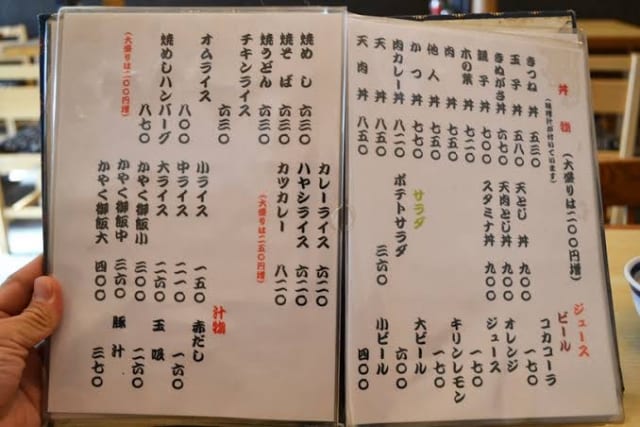 丼物 (大盛りは二〇〇円増)
(味噌汁が付いています)
きつね丼 五三〇
玉子丼 五八〇
きぬがさ丼 六七〇
親子丼 七〇〇
木の葉丼 六二〇
肉丼 七五〇
他人丼 七五〇
かつ丼 七七〇
肉カレー丼 八二〇
天丼 八五〇
天肉丼 八五〇
天とじ丼 九〇〇
天肉とじ丼 九〇〇
スタミナ丼 九〇〇
サラダ
ポテトサラダ 三六〇
ジュース
ビール
コカコーラ 一七〇
オレンジジュース 一七〇
キリンレモン 一七〇
大ビール 六〇〇
小ビール 四〇〇
焼めし 六三〇
焼そば 六三〇
焼うどん 六三〇
チキンライス 六三〇
オムライス 八〇〇
焼めしハンバーグ 八七〇
(大盛りは二〇〇円増)
カレーライス 六二〇
ハヤシライス 六二〇
カツカレー 八二〇
(大盛りは二五〇円増)
小ライス 一五〇
中ライス 二一〇
大ライス 二六〇
かやく御飯小 三〇〇
かやく御飯中 三六〇
かやく御飯大 四〇〇
汁物
赤だし 一六〇
玉吸 二六〇
豚汁 三七〇